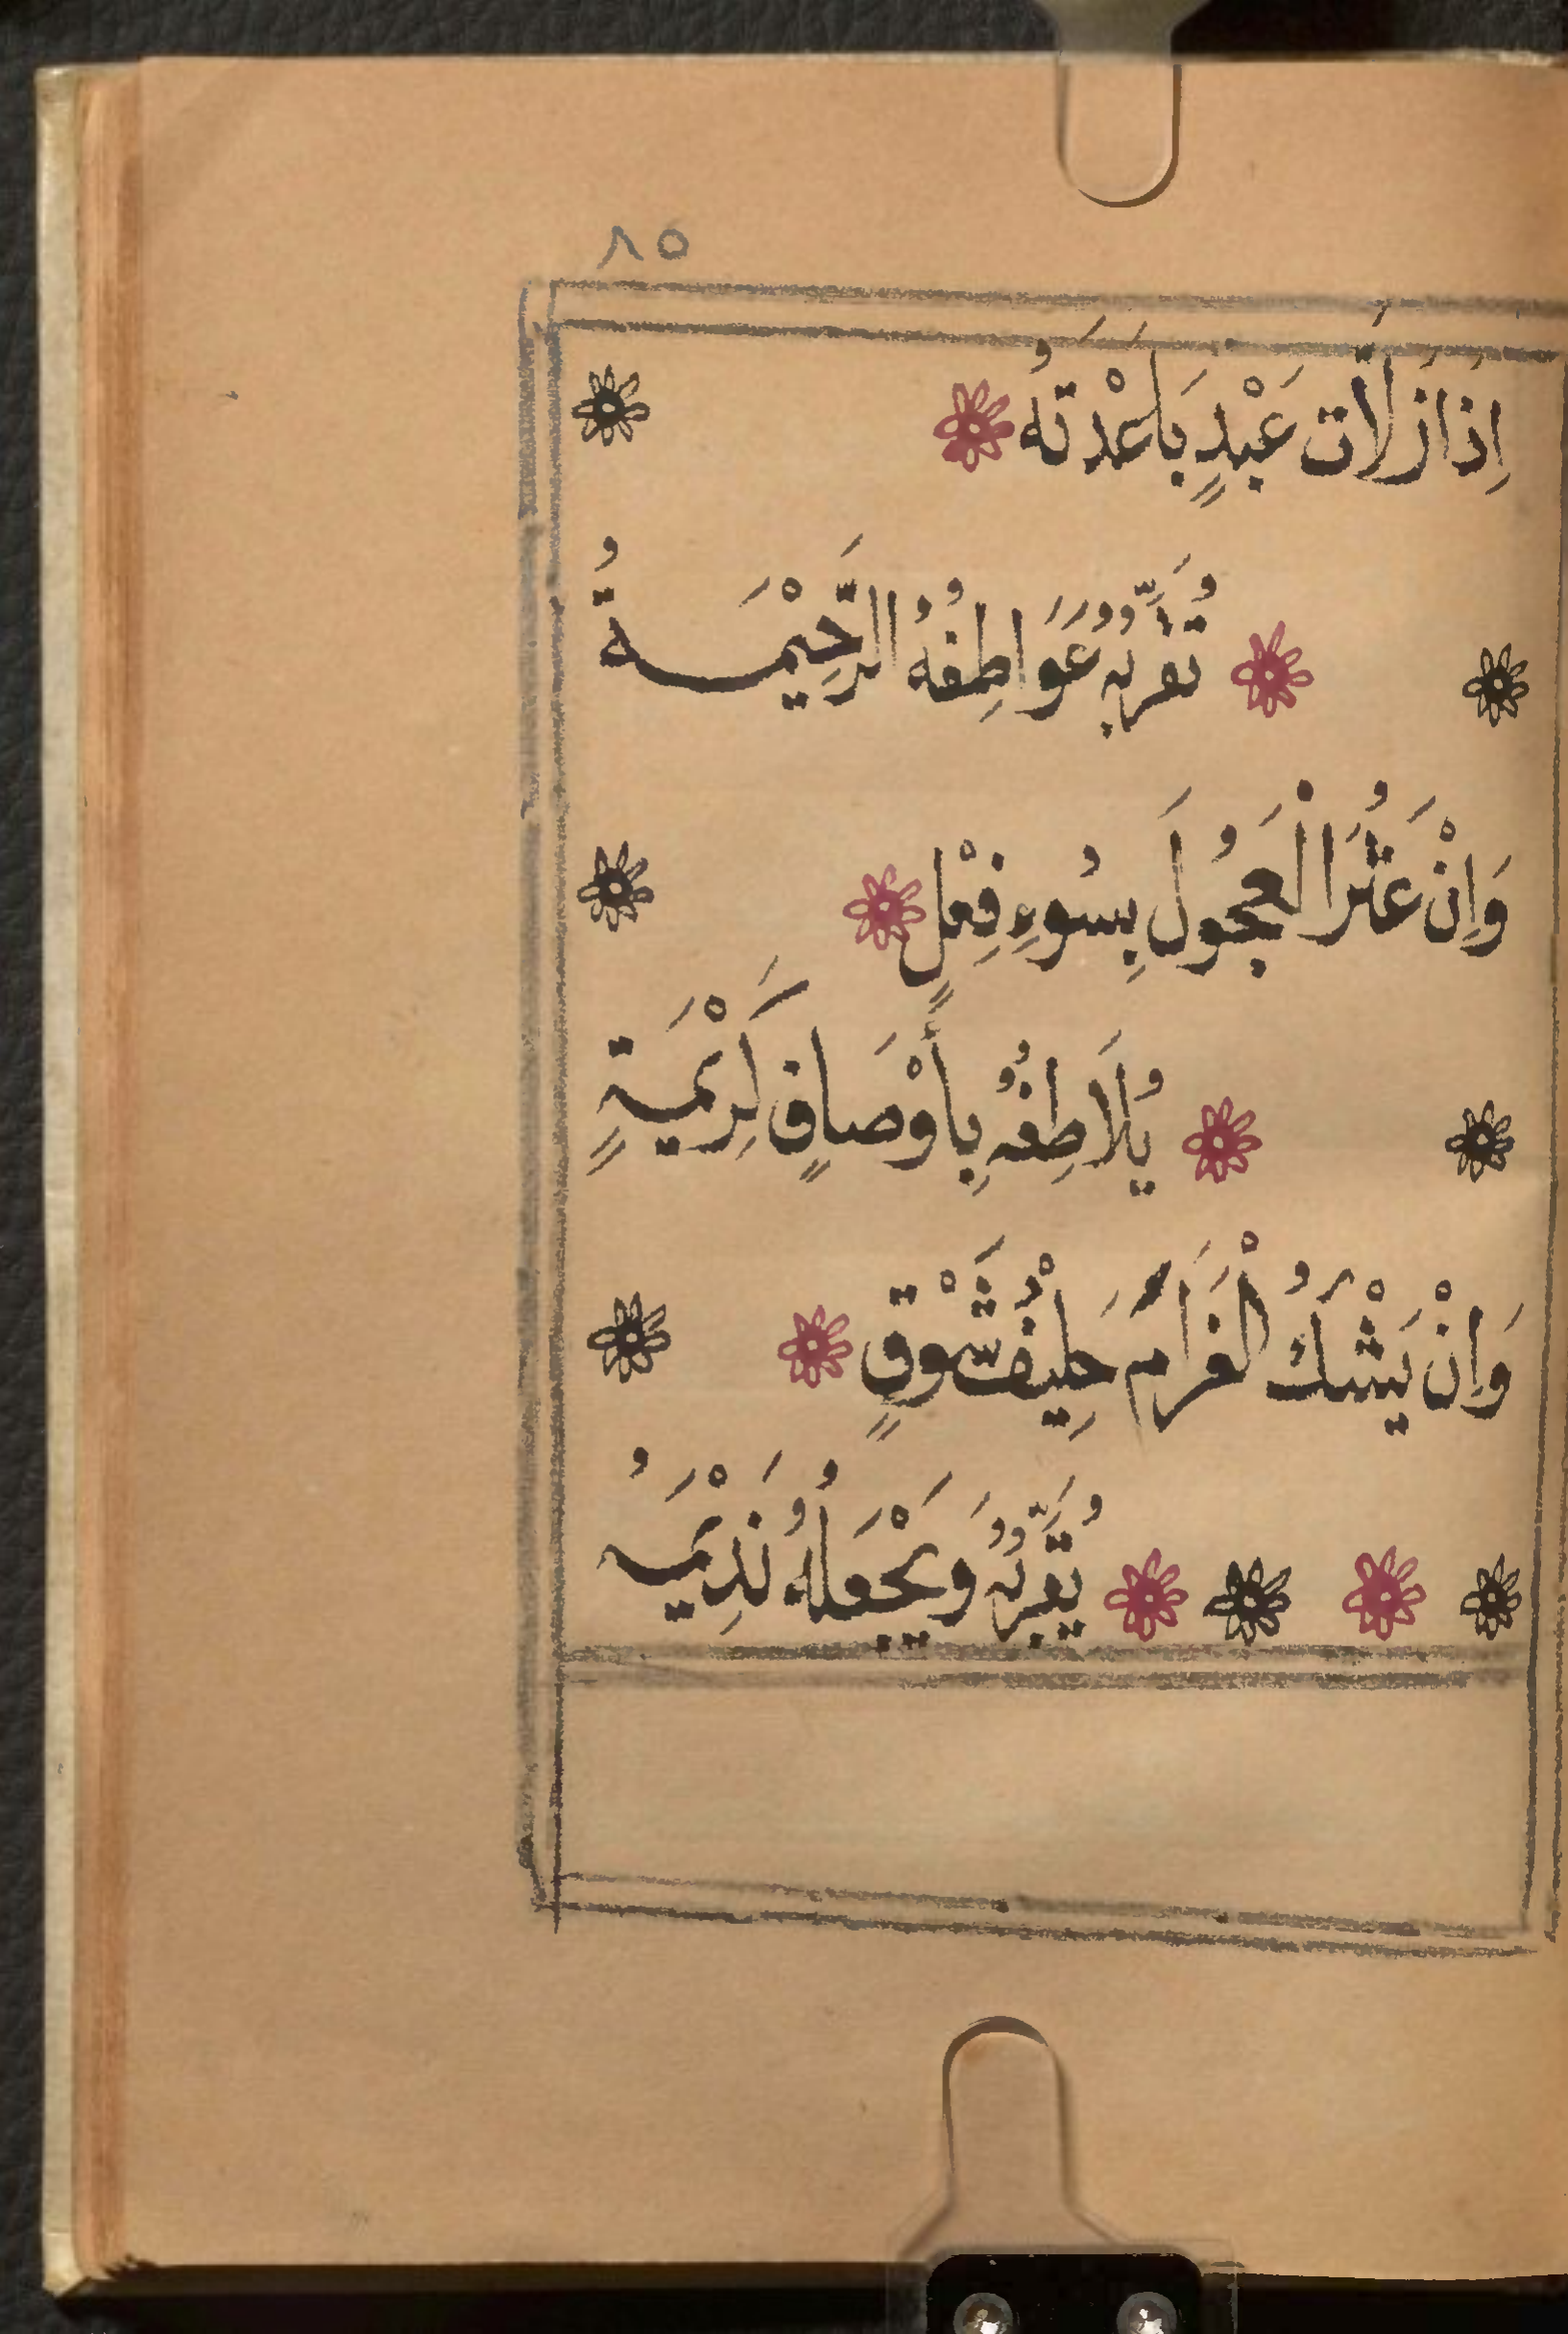 ٨٥
اِذَا زَلَّاتُ عَبْدٍ بَاعَدَتْهُ
تُقَرِّبُهُ عَوَاطِفُهُ الرَّحِيْمَةُ
وَاِنْ عَثُرَ الْعَجُولَ بِسُوءِ فِعْلٍ
يُلَاطِفُهُ بِأَوْصَافٍ كَرِيْمَةٍ
وَاِنْ يَشْكُ الْغَرَامَ حَلِيْفُ شَوْقٍ
يُقَرِّبُهُ وَيَجْعَلُهُ نَدِيْمَهُ